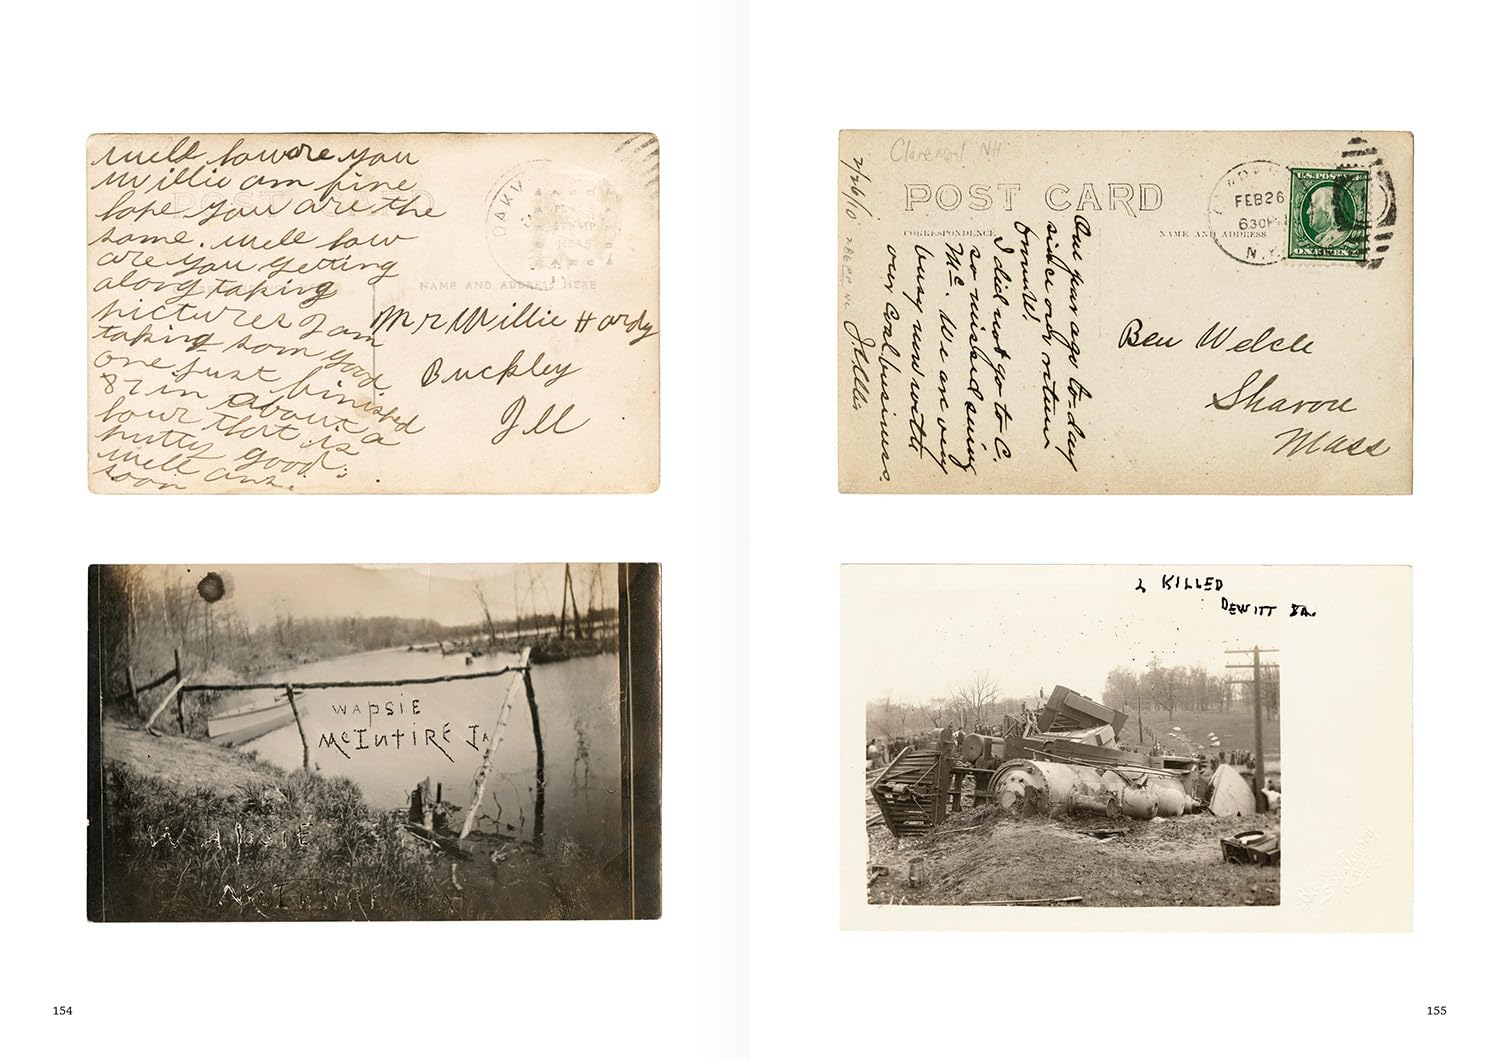 well how are you
Willie am fine
hope you are the
same. well how
are you getting
along taking
pictures I am
taking som good
one just finished
87 in about a
hour that is
pretty good.
well ans.
soon
POST CARD
OAKV
PLACE
STAMP
HERE
NAME AND ADDRESS HERE
Mr Willie Hardy
Buckley
Ill
WAPSIE
McINTIRE IA
WAPSIE
McINTIRE
154
Claremont NH
2/26/10
POST CARD
CORRESPONDENCE
NAME AND ADDRESS
FEB 26
630 PM
N.Y.
U.S. POSTAGE
ONE CENT
One year ago to-day
since our return
I did not go to C.
so missed seeing
Mc. We are very
busy now with
our coal business.
Ben Welch
Sharon
Mass
2 KILLED
DEWITT IA.
155